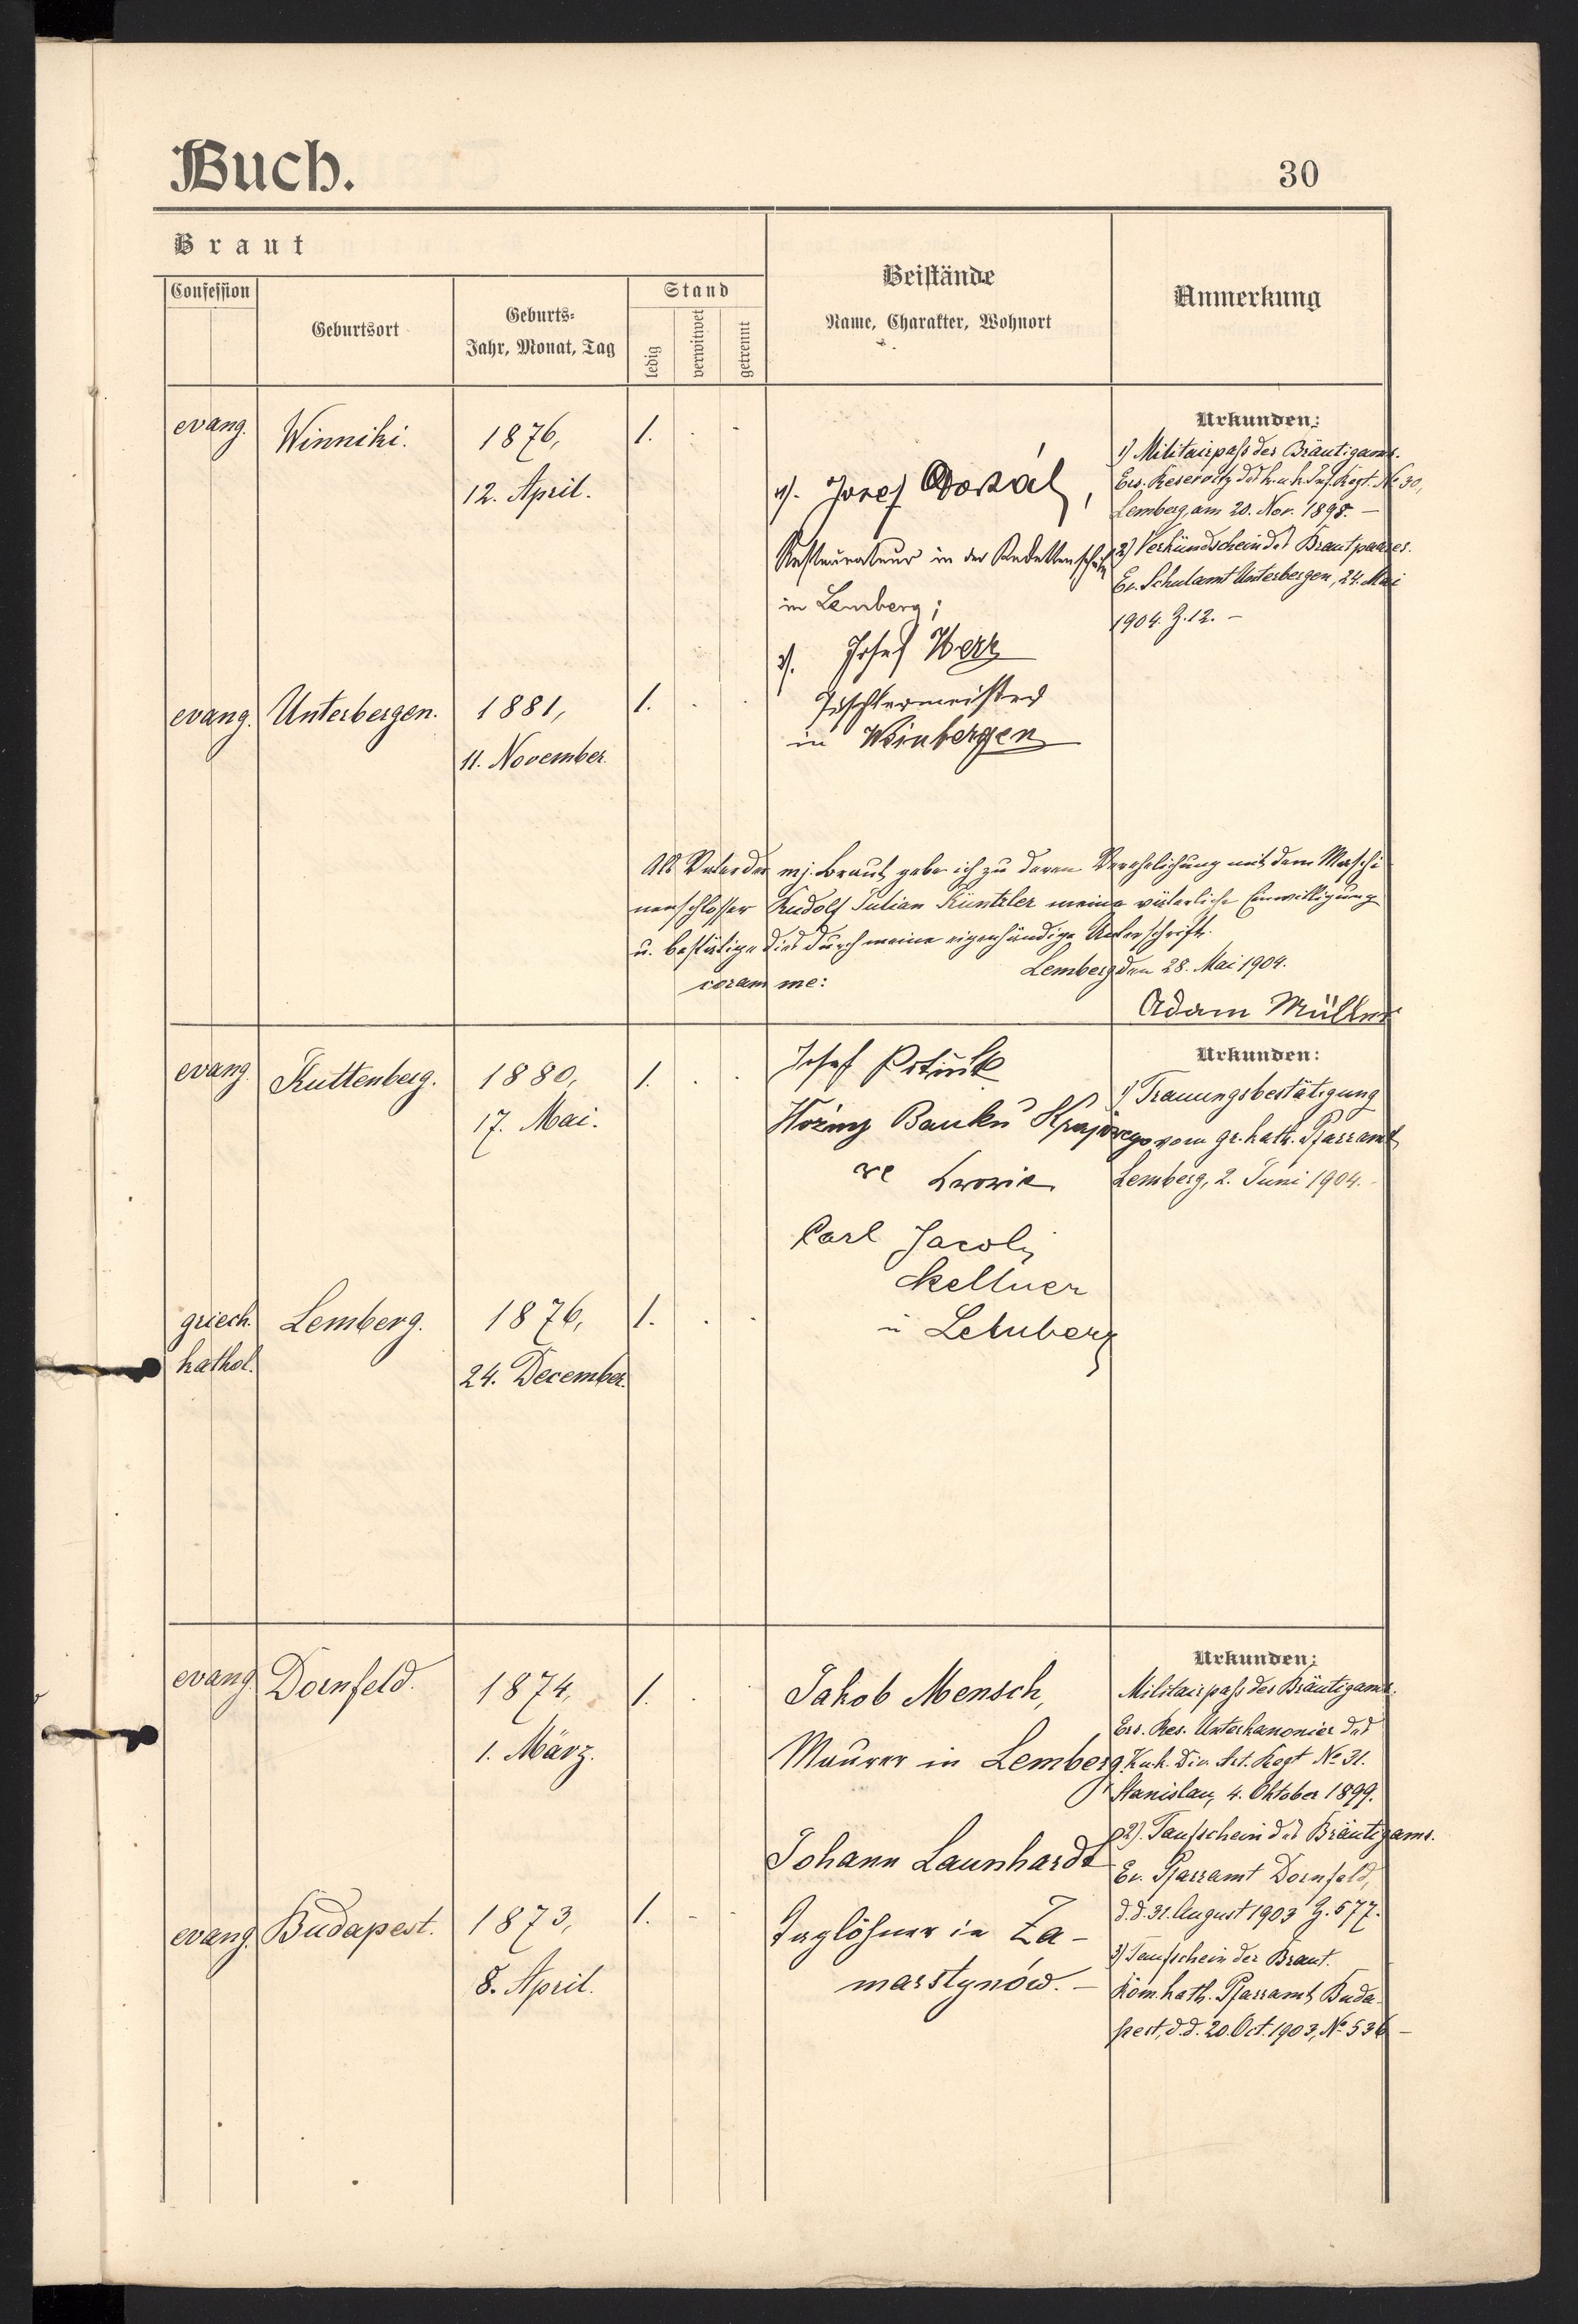 Buch.
30
Braut
Confession
Geburtsort
Geburts-
Jahr, Monat, Tag
Stand
ledig
verwitwet
getrennt
Beistände
Name, Charakter, Wohnort
Anmerkung
evang. Winniki. 1876, 1.
12. April.
1). Josef Dostál,
Restaurateur in der Kadettenschule
in Lemberg;
2). Josef Herz
Tischlermeister
in Weinbergen
Urkunden:
1) Militairpaß des Bräutigams.
Ers. Reservist des k. u. k. Inf. Regt. № 30,
Lemberg, am 20. Nov. 1898. —
2) Verkündschein des Brautpaares.
Ev. Schulamt Unterbergen, 24. Mai
1904. Z. 12. —
evang. Unterbergen. 1881, 1.
11. November.
Als Vater der mj. Braut gebe ich zu deren Verehelichung mit dem Maschi-
nenschlosser Rudolf Julian Küntzler meine väterliche Einwilligung
u. bestätige dies durch meine eigenhändige Unterschrift.
Lemberg den 28. Mai 1904.
coram me:
Adam Müller
evang. Kuttenberg. 1880, 1.
17. Mai.
Josef
Woźny Banku Krajowego
we Lwowie
Carl Jacobi
Kellner
in Lemberg
Urkunden:
1) Trauungsbestätigung
vom gr. kath. Pfarramt
Lemberg, 2. Juni 1904. -
griech. Lemberg. 1876, 1.
kathol.
24. December.
evang. Dornfeld. 1874, 1.
1. März.
Jakob Mensch,
Maurer in Lemberg.
Johann Launhardt
Taglöhner in Za-
marstynów. —
Urkunden:
Militairpaß des Bräutigams.
Ers. Res. Unterkanonier des
K. u. k. Div. Art. Regt № 31.
Stanislau, 4. Oktober 1899.
2). Taufschein des Bräutigams.
Ev. Pfarramt Dornfeld,
d. d. 31. August 1903 Z. 577.
3) Taufschein der Braut.
Röm. kath. Pfarramt Buda-
pest, d. d. 20. Oct. 1903, № 536 —
evang. Budapest. 1873, 1.
8. April.